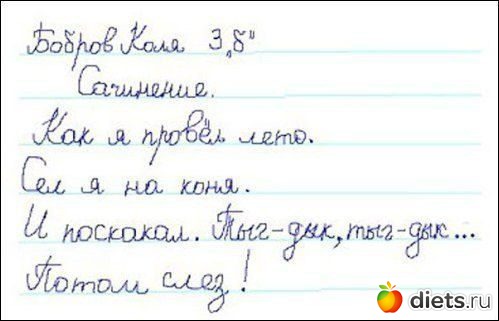 Бобров Коля 3„Б"
Сочинение.
Как я провёл лето.
Сел я на коня.
И поскакал. Тыг-дык, тыг-дык...
Потом слез!
diets.ru